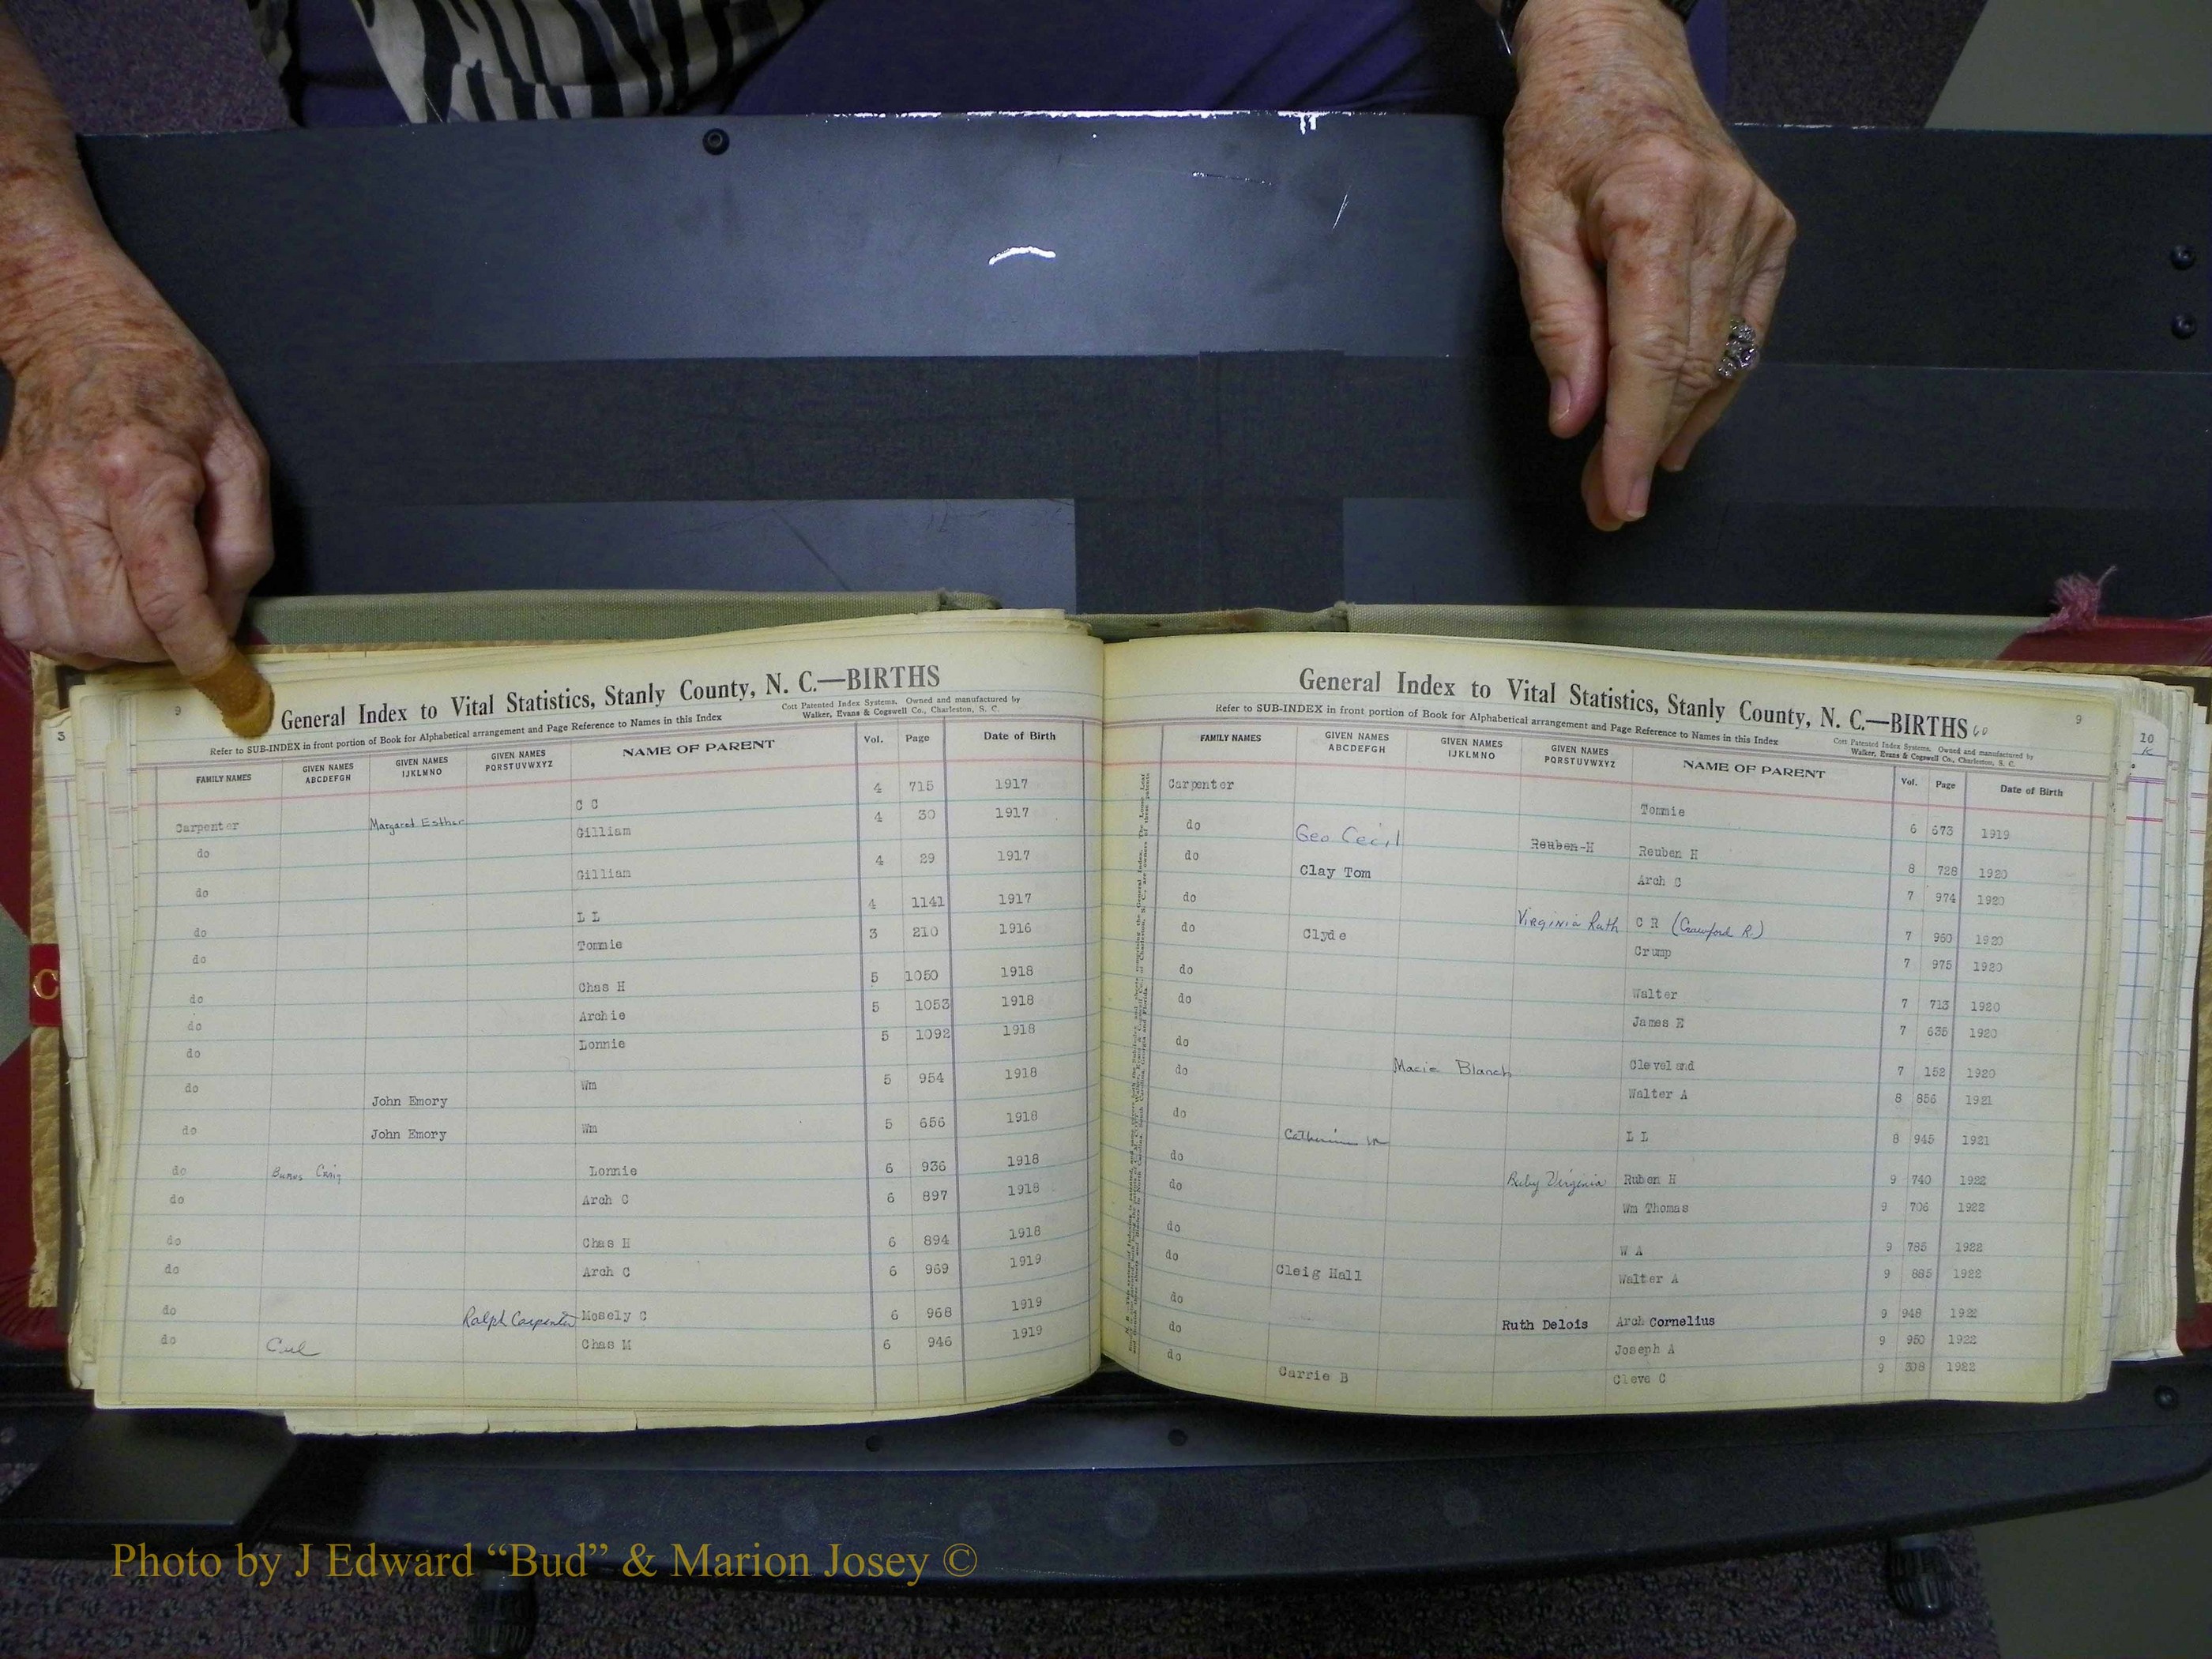 9
General Index to Vital Statistics, Stanly County, N. C.—BIRTHS
Refer to SUB-INDEX in front portion of Book for Alphabetical arrangement and Page Reference to Names in this Index
Cott Patented Index Systems, Owned and manufactured by
Walker, Evans & Cogswell Co., Charleston, S. C.
FAMILY NAMES GIVEN NAMES ABCDEFGH GIVEN NAMES IJKLMNO GIVEN NAMES PQRSTUVWXYZ NAME OF PARENT Vol. Page Date of Birth
Carpenter Margaret Esther C C 4 715 1917
do Gilliam 4 30 1917
do Gilliam 4 29 1917
do L L 4 1141 1917
do Tommie 3 210 1916
do Chas H 5 1050 1918
do Archie 5 1053 1918
do Lonnie 5 1092 1918
do John Emory Wm 5 954 1918
do John Emory Wm 5 656 1918
do Craig Lonnie 6 936 1918
do Arch C 6 897 1918
do Chas H 6 894 1918
do Arch C 6 969 1919
do Ralph Carpenter Mosely C 6 968 1919
do Chas M 6 946 1919
General Index to Vital Statistics, Stanly County, N. C.—BIRTHS 60
9
Refer to SUB-INDEX in front portion of Book for Alphabetical arrangement and Page Reference to Names in this Index
Cott Patented Index Systems, Owned and manufactured by
Walker, Evans & Cogswell Co., Charleston, S. C.
FAMILY NAMES GIVEN NAMES ABCDEFGH GIVEN NAMES IJKLMNO GIVEN NAMES PQRSTUVWXYZ NAME OF PARENT Vol. Page Date of Birth
Carpenter Tommie 6 673 1919
do Geo Cecil Reuben H Reuben H 8 728 1920
do Clay Tom Arch C 7 974 1920
do Virginia Ruth C R (Crawford R.) 7 960 1920
do Clyde Crump 7 975 1920
do Walter 7 713 1920
do James E 7 635 1920
do Cleveland 7 152 1920
do Macie Blanch Walter A 8 856 1921
do Catherine L L 8 945 1921
do Ruby Virginia Ruben H 9 740 1922
do Wm Thomas 9 706 1922
do W A 9 785 1922
do Cleig Hall Walter A 9 885 1922
do Ruth Delois Arch Cornelius 9 948 1922
do Joseph A 9 950 1922
do Carrie B Cleve C 9 308 1922
3
C
10
Photo by J Edward “Bud” & Marion Josey ©